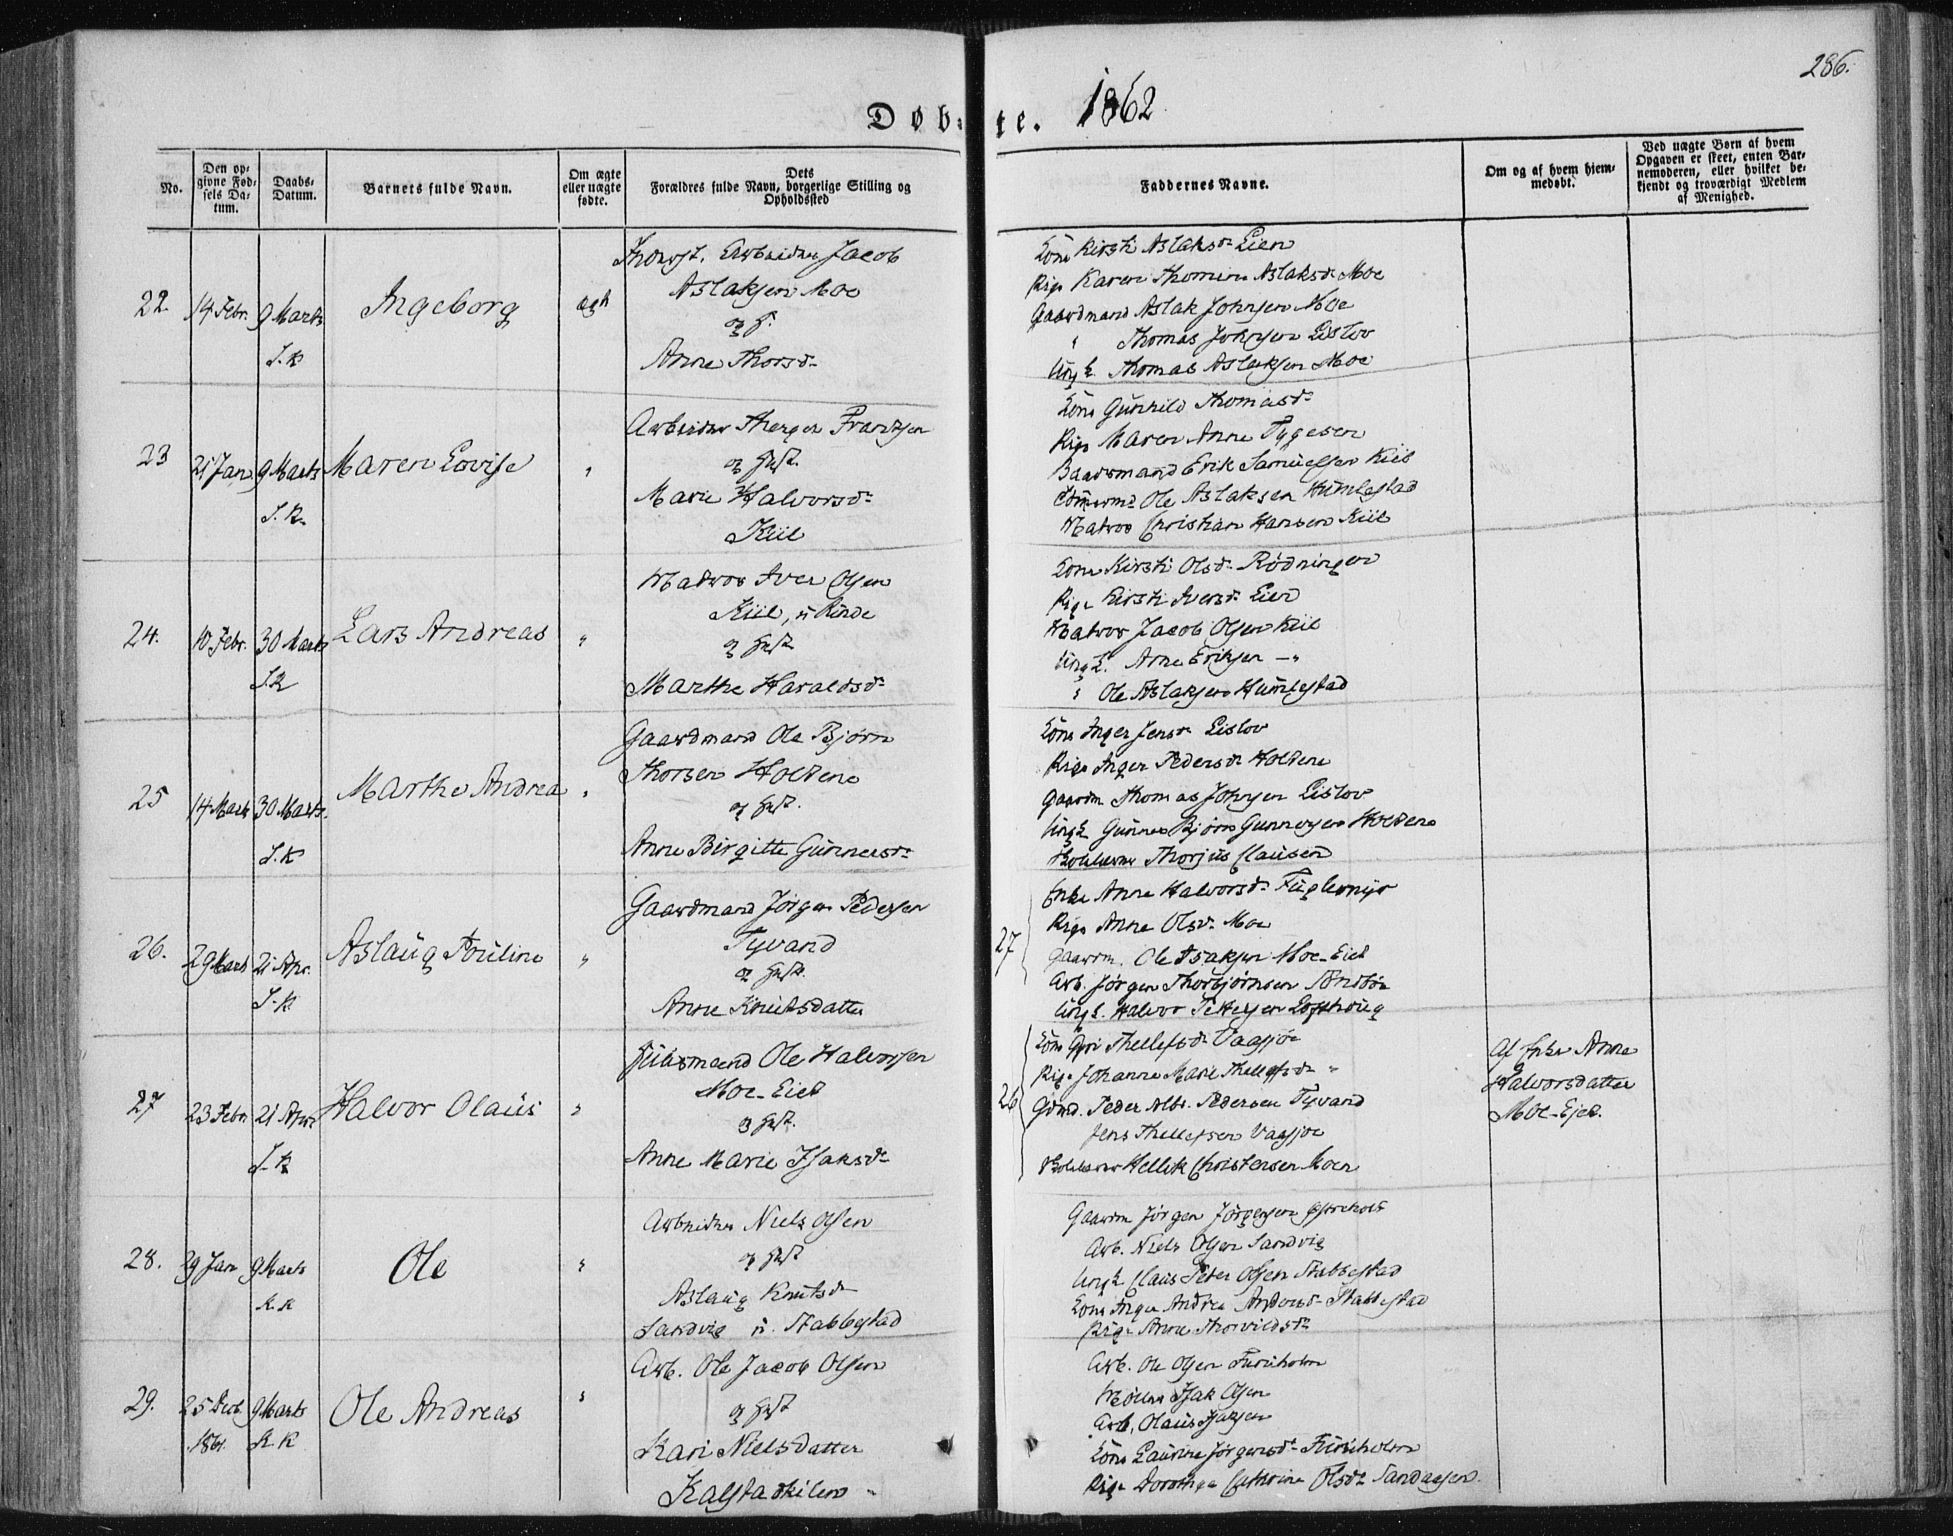 286.
Døbte. 1862
No.
Den opgivne Fødsels Datum.
Daabs-Datum.
Barnets fulde Navn.
Om ægte eller uægte fødte.
Dets Forældres fulde Navn, borgerlige Stilling og Opholdssted
Faddernes Navne.
Om og af hvem hjemmedøbt.
Ved uægte Børn af hvem Opgaven er skeet, enten Barnemoderen, eller hvilket bekjendt og troværdigt Medlem af Menighed.
22. 14 Febr. 9 Marts Ingeborg ægt
S. K
Arbeider Jacob
Aslaksen Moe
og H.
Anne Thorsdr
Kone Kirsti Aslaksdr Lien
Pige Karen Thomine Aslaksdr Moe
Gaardmand Aslak Johnsen Moe
" Thomas Johnsen Eislov
Ungk. Thomas Aslaksen Moe
23 21 Jan. 9 Marts Maren Lovise "
S. K.
Arbeider Frantzen
og Hust.
Marie Halvorsdr
Kiil
Kone Gunhild Thomasdr
Pige Maren Anne Tygesen
Gaardmand Erik Samuelsen Kiil
Ole Aslaksen Humlestad
Matros Christian Hansen Kiil
24. 10 Febr. 30 Marts Lars Andreas "
S. K
Matros Iver Olsen
Kiil, u Rinde
og Hust.
Marthe Haraldsdr
Kone Kirsti Olsdr Rødningen
Pige Kirsti Iversdr Eien
Matros Jacob Olsen Kiil
Ungk. Arne Eriksen — "
" Ole Aslaksen Humlestad
25 14 Marts 30 Marts. Marthe Andrea "
S. K
Gaardmand Ole Bjørn
Thorsen Holtene
og Hust.
Anne Birgitte Gunnersdr
Kone Inger Jensdr Eislov
Pige Inger Pedersdr Holtene
Gaardm Thomas Johnsen Eislov
Ungk Gunner Bjørn Gunnersen Holtene
Skolelærer Thorjus Clausen
26. 29 Marts 21 Apr. Aslaug Pouline "
S. K
Gaardmand Jørgen Pedersen
Tyvand
og Hust.
Anne Knutsdatter
27
Enke Anne Halvorsdr Fuglemyr
Pige Anne Olsdr Moe
Gaardm. Ole Isaksen Moe-Eiet
Arb. Jørgen Thorbjørnsen
Ungk. Halvor Pettersen
27 23 Febr 21 Apr. Halvor Olaus "
S. K
Huusmand Ole Halvorsen
Moe-Eiet
og Hust.
Anne Marie Isaksdr
26
Kone Gyri Thellefsdr Vasjøe
Pige Johanne Marie Thellefsdr "
Gdmd. Peder Alb. Pedersen Tyvand
Jens Thellefsen Vasjøe
Skolelærer Hellik Christensen Moen
Af Enke Anne
Halvorsdatter
Moe-Ejet.
28. 29 Jan 9 Marts Ole "
K. K
Arbeider Niels Olsen
og Hust
Aslaug Knutsdr
Sandvig u. Stabbestad
Gaardm Jørgen Jørgensen
Arb. Niels Olsen Sandvig
Ungk Claus Peter Olsen Stabbestad
Kone Inger Andrea Andersdr Stabbestad
Pige Anne
29. 25 Decb. 9 Marts Ole Andreas "
1861. K. K
Arb. Ole Jacob Olsen
og Hust
Kari Nielsdatter
Kalstadkilen
Arb. Ole Olsen Furuholm
Isak Olsen
Arb. Olaus
Kone Laurine Jørgensdr Furuholm
Pige Dorothea Cathrine Olsdr Sandaasen